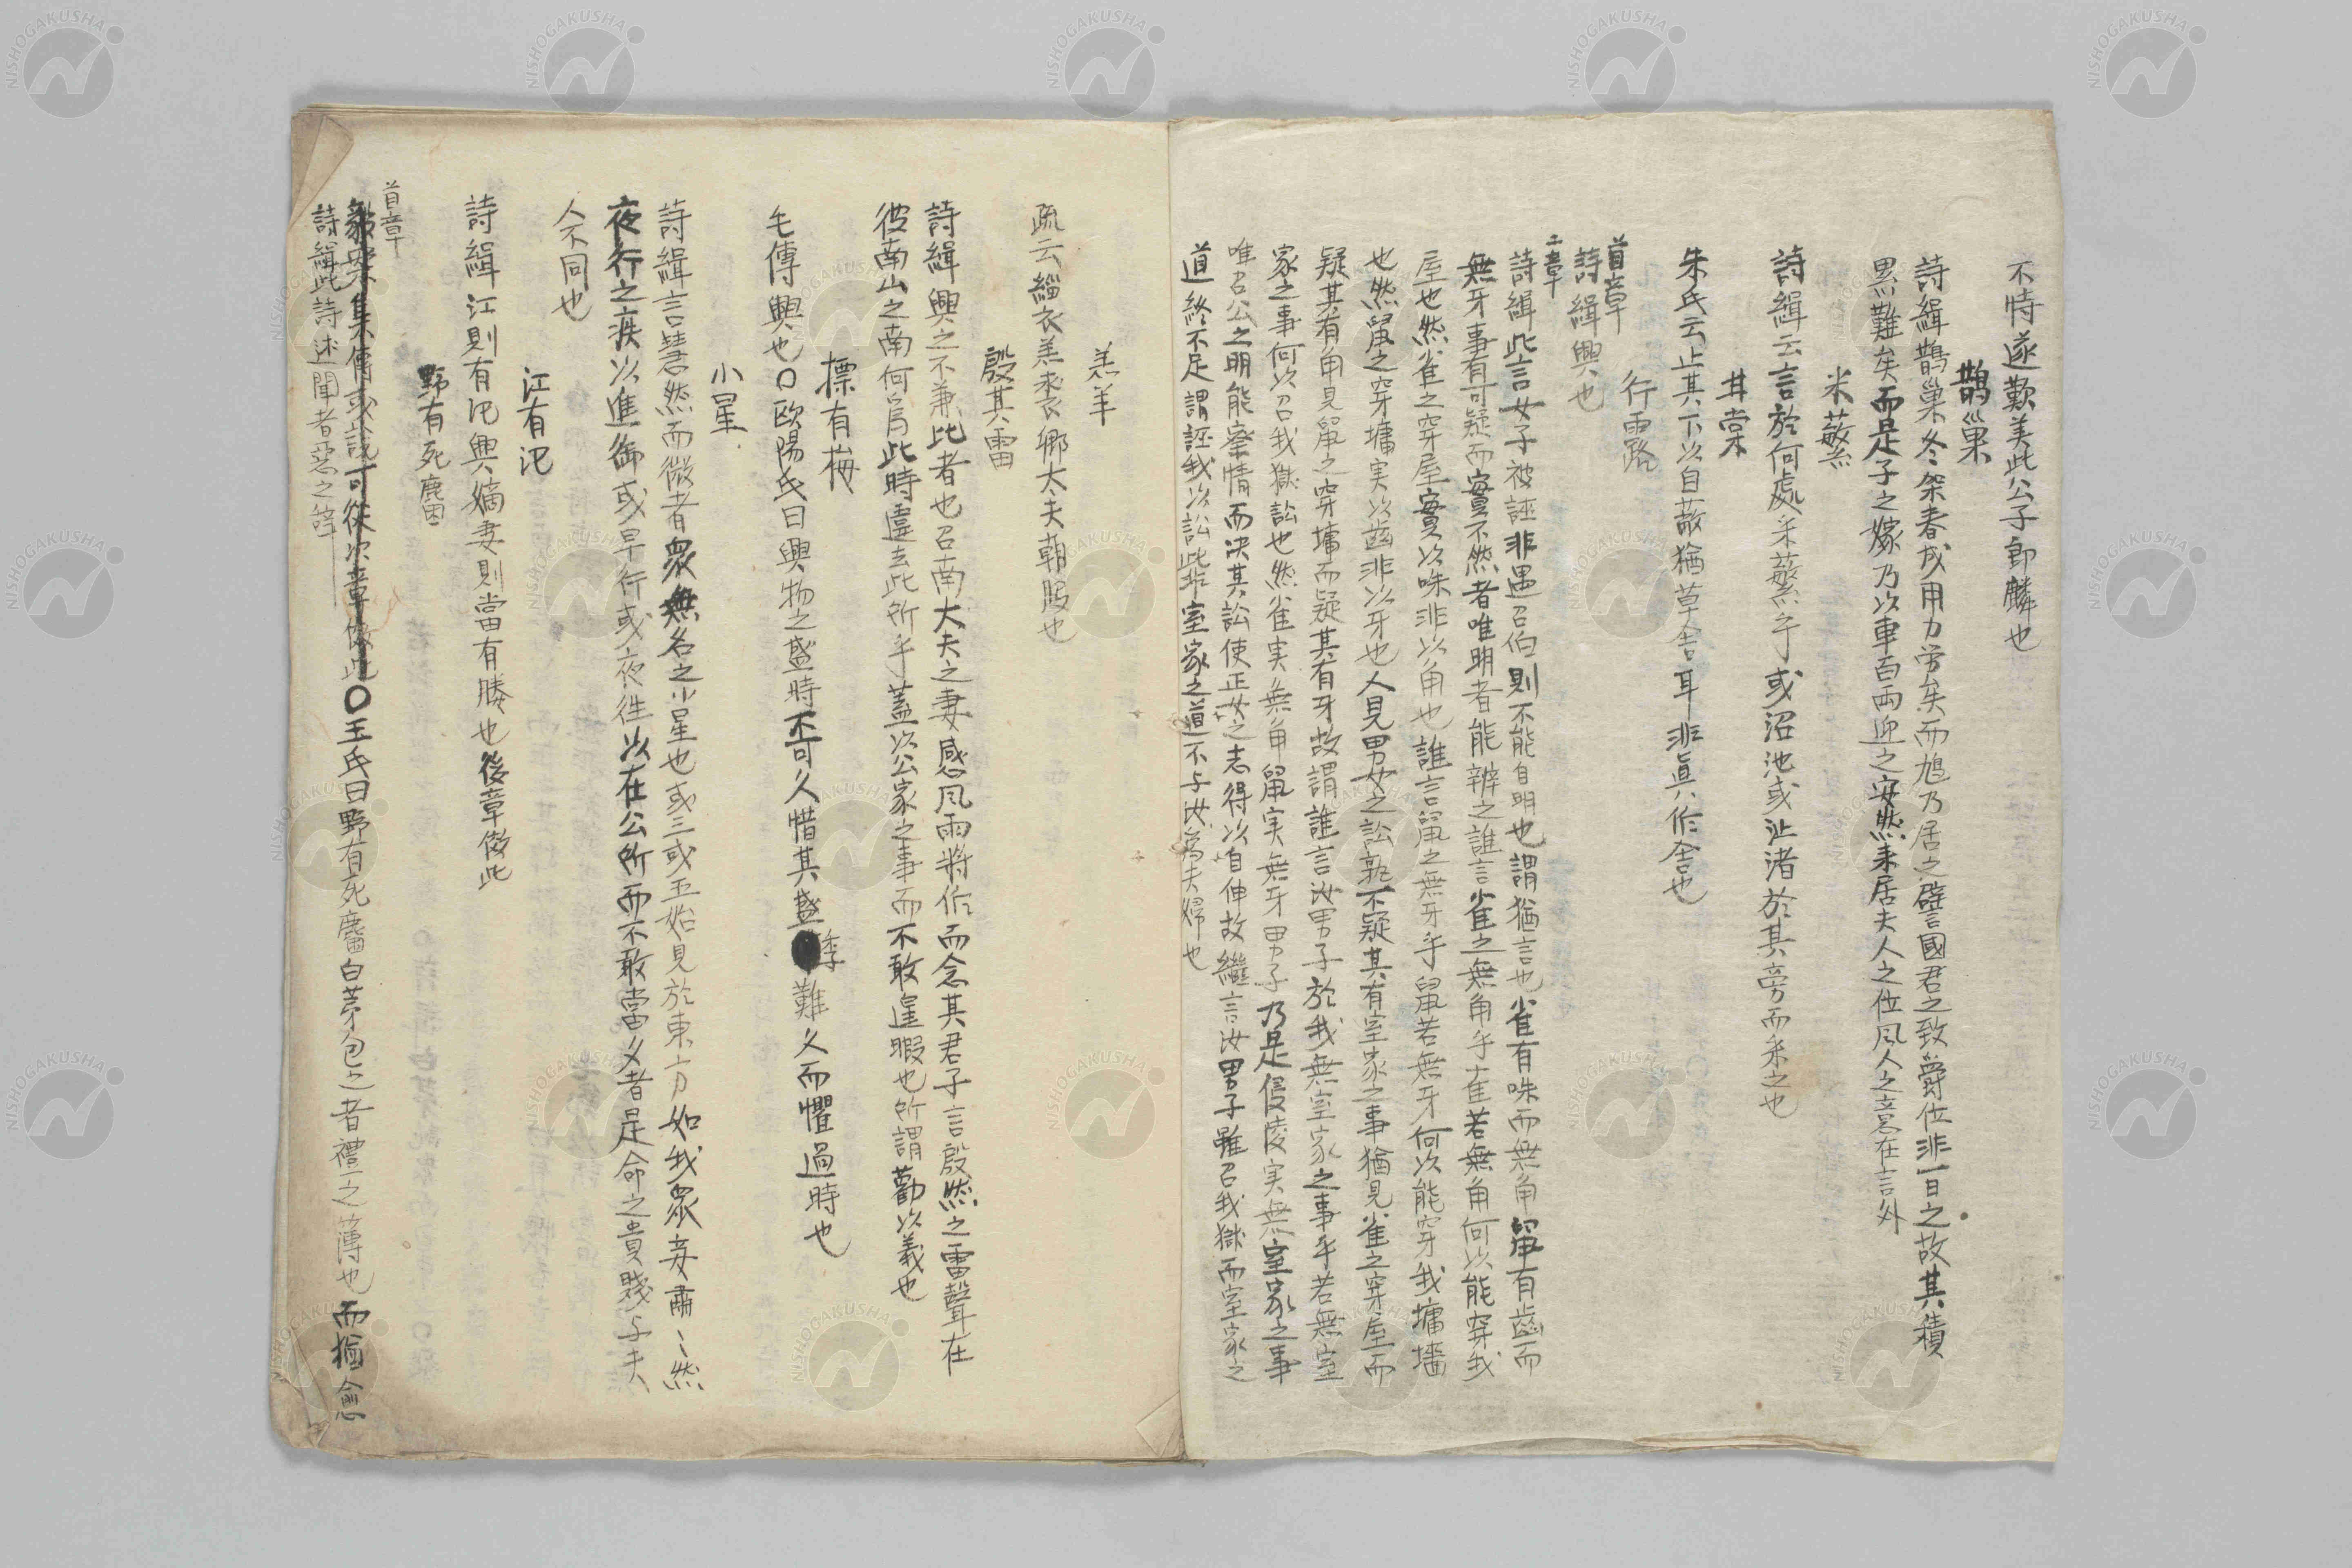 不恃遂歎美此公子即麟也
鵲巢
詩緝鵲巢冬架春成用力労矣而鳩乃居之譬國君之致爵位非一日之故其積
累難矣而是子之嫁乃以車百両迎之安然来居夫人之位風人之意在言外
采蘩
詩緝云言於何處采蘩乎或沼池或沚渚於其旁而采之也
甘棠
朱氏云止其下以自蔽猶草舎耳非真作舎也
行露
首章
詩緝興也
二章
詩緝此言女子被誣非遇召伯則不能自明也謂猶言也雀有咮而無角鼠有齒而
無牙事有可疑而實不然者唯明者能辨之誰言雀之無角乎雀若無角何以能穿我
屋也然雀之穿屋實以咮非以角也誰言鼠之無牙乎鼠若無牙何以能穿我墉墻
也然鼠之穿墉実以齒非以牙也人見男女之訟孰不疑其有室家之事猶見雀之穿屋而
疑其有角見鼠之穿墉而疑其有牙故謂誰言汝男子於我無室家之事乎若無室
家之事何以召我獄訟也然雀実無角鼠実無牙男子乃是侵陵実無室家之事
唯召公之明能察情而决其訟使正女之志得以自伸故繼言汝男子雖召我獄而室家之
道終不足謂誣我以訟此非室家之道不与汝為夫婦也
羔羊
疏云緇衣羔裘卿大夫朝服也
殷其雷
詩緝興之不兼比者也召南大夫之妻感風雨將作而念其君子言殷然之雷聲在
彼南山之南何爲此時違去此所乎蓋以公家之事而不敢遑暇也所謂勸以義也
摽有梅
毛傳興也〇歐陽氏曰興物之盛時不可久惜其盛季難久而懼過時也
小星
詩緝言嘒然而微者衆無名之小星也或三或五始見於東方如我衆妾肅〻然
夜行之疾以進御或早行或夜徃以在公所而不敢當夕者是命之貴賤与夫
人不同也
江有汜
詩緝江則有汜興嫡妻則當有媵也後章倣此
野有死麕
首章
集傳或説可從次章倣此〇王氏曰野有死麕白茅包之者禮之薄也而猶愈
詩緝此詩述聞者惡之辞
NISHOGAKUSHA